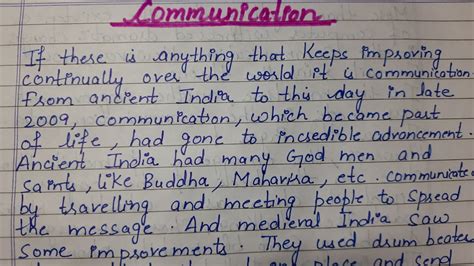 Communication
If there is anything that keeps improving
continually over the world it is communication
from ancient India to this day in late
2009, communication, which became part
of life, had gone to incredible advancement.
Ancient India had many God men and
saints, like Buddha, Mahavira, etc. communicate
by travelling and meeting people to spread
the message. And medieval India saw
some improvements. They used drum beate
and place and send